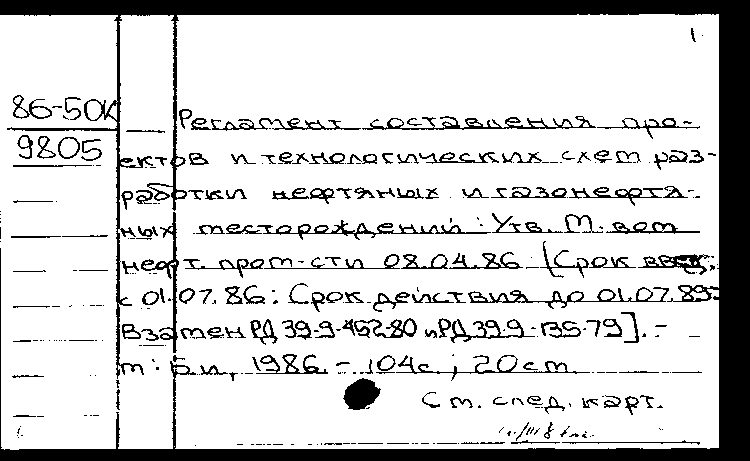 1.
86-50К
9805
Регламент составления про-
ектов и технологических схем раз-
работки нефтяных и газонефтя-
ных месторождений: Утв. М-вом
нефт. пром-сти 08.04.86 [Срок введ.
с 01.07.86: Срок действия до 01.07.89:
Взамен РД 39-9-452-80 и РД 39-9-135-79]. -
м: Б.и, 1986. - 104с.; 20см.
См. след. карт.